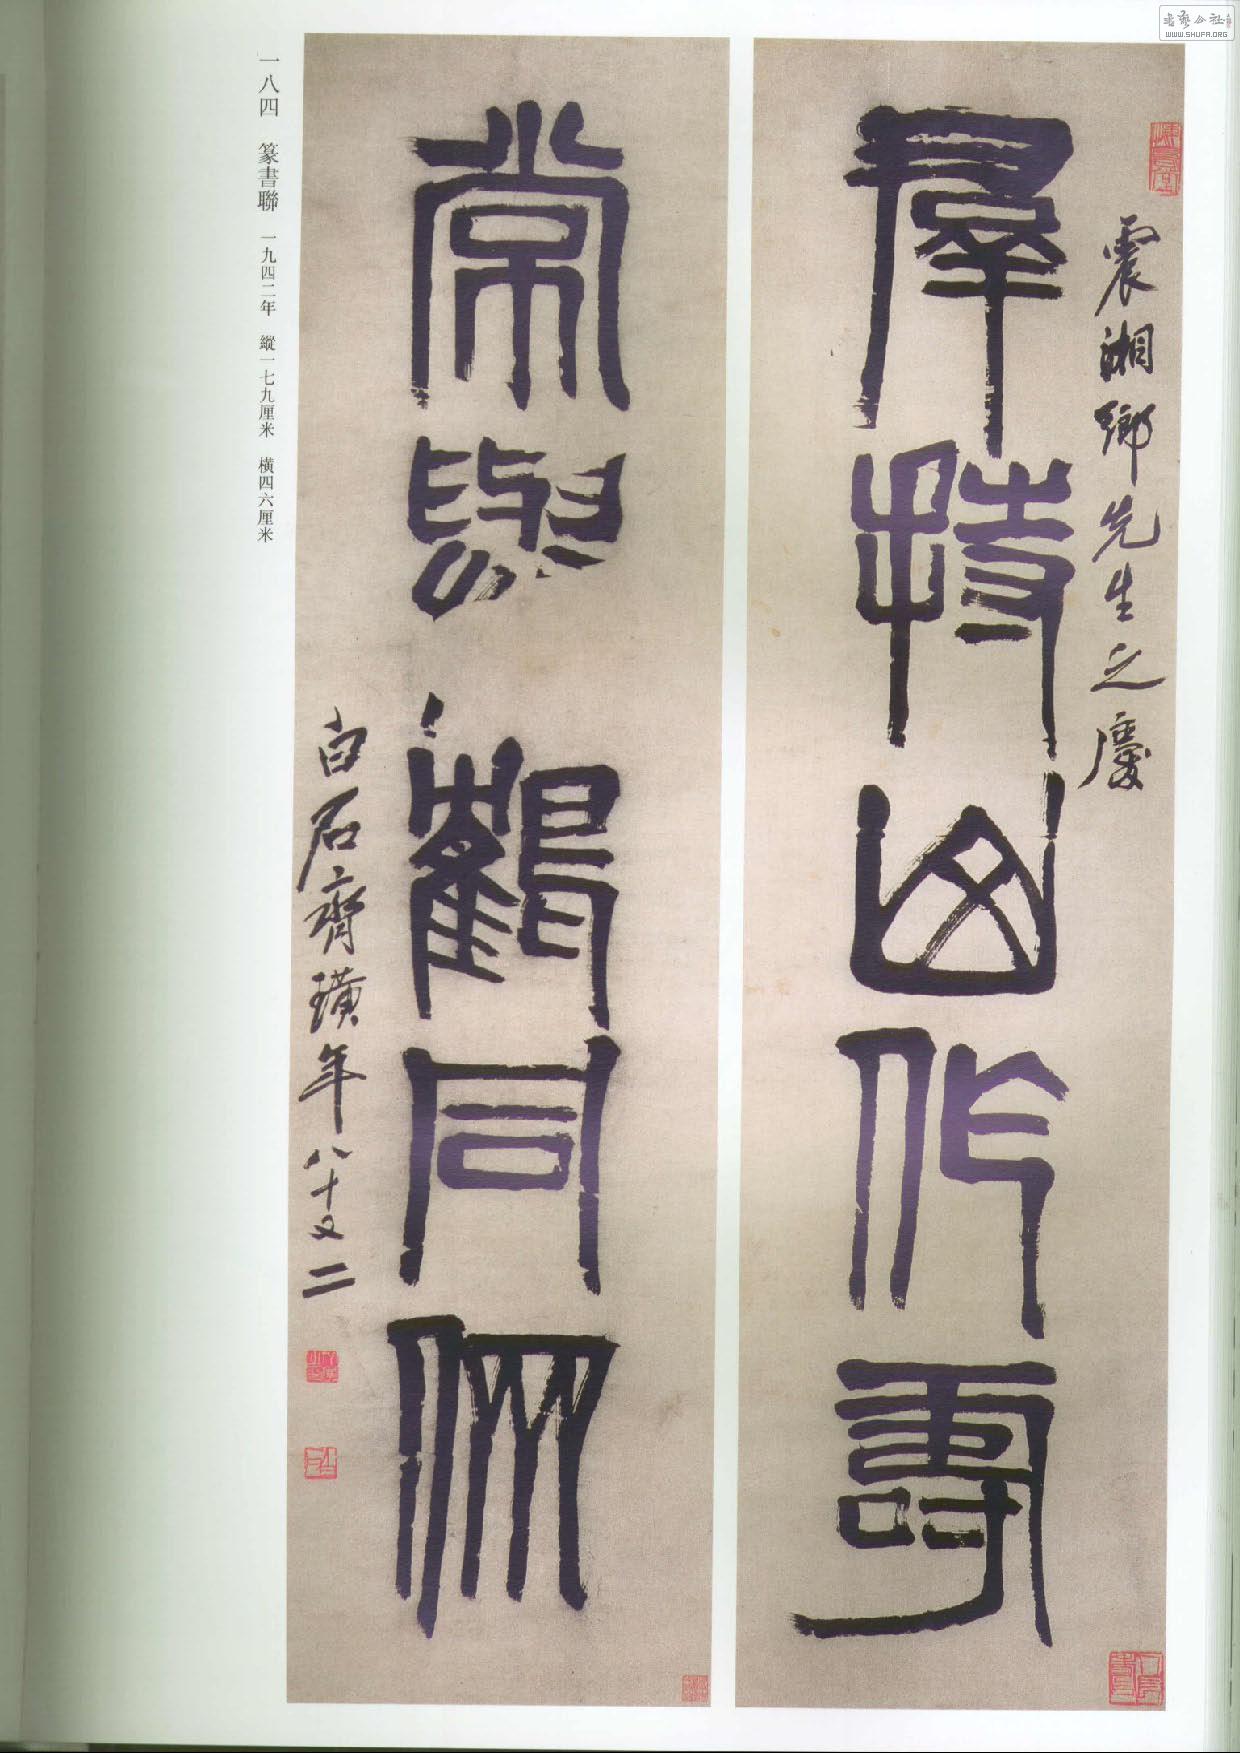 書藝公社
WWW.SHUFA.ORG
震湘鄉先生之慶
羣持山作壽
常與鶴同
白石齊璜年八十又二
一八四 篆書聯 一九四二年 縱一七九厘米 橫四六厘米